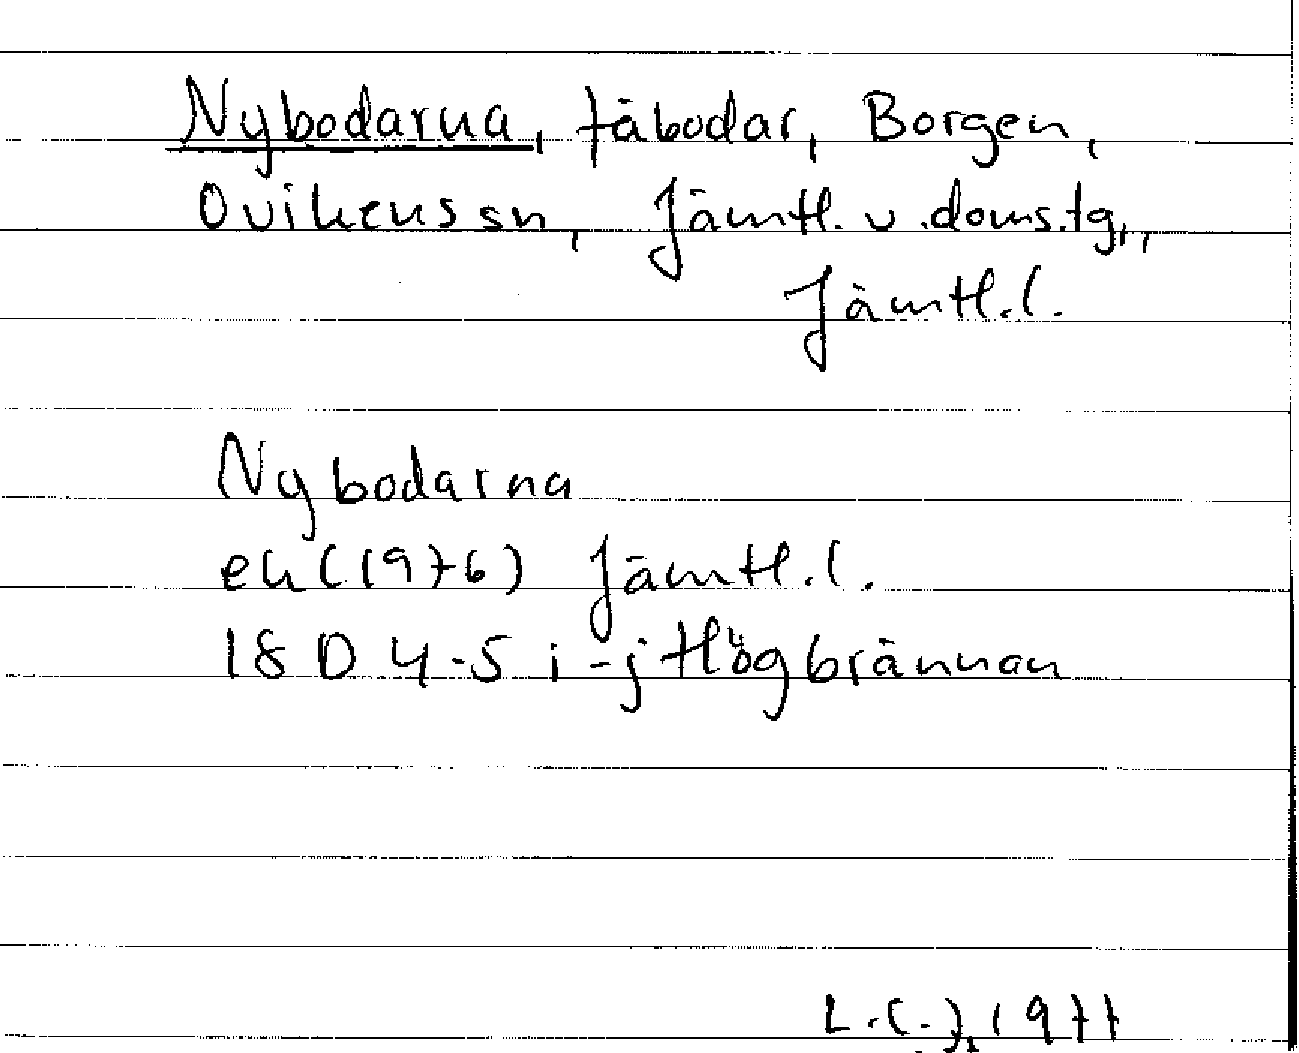 Nybodarna, fäbodar, Borgen,
Ovikens sn, Jämtl. v. doms.tg,,
Jämtl.l.
Nybodarna
ek (1976) Jämtl.l.
18 D 4-5 i-j Högbrännan
1977